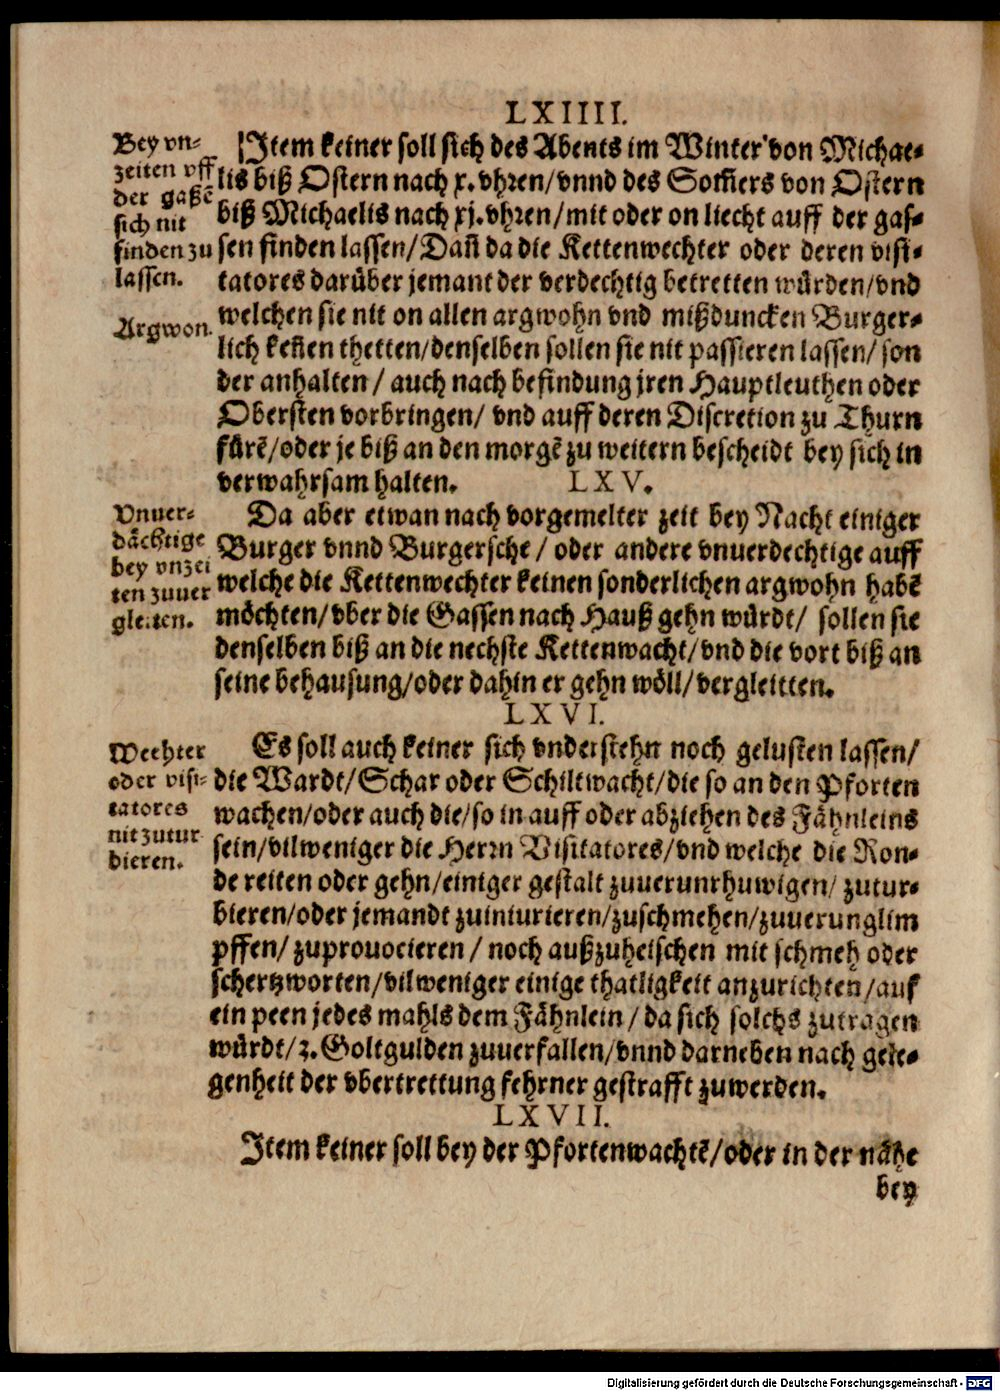 LXIIII.
Bey vn-
zeiten vff
der gaßẽ
sich nit
finden zu
lassen.
Argwon.
Item keiner soll sich des Abents im Winter von Michae-
lis biß Ostern nach x. vhren/vnnd des Som̃ers von Ostern
biß Michaelis nach xj. vhren/mit oder on liecht auff der gas-
sen finden lassen/Dañ da die Kettenwechter oder deren visi-
tatores darüber jemant der verdechtig betretten würden/vnd
welchen sie nit on allen argwohn vnd mißduncken Burger-
lich keñen thetten/denselben sollen sie nit passieren lassen/ son
der anhalten/ auch nach befindung jren Hauptleuthen oder
Obersten vorbringen/ vnd auff deren Discretion zu Thurn
fürẽ/oder je biß an den morgẽ zu weitern bescheidt bey sich in
verwahrsam halten.
LXV.
Vnuer-
dächtige
bey vnzei
ten zuuer
gleiten.
Da aber etwan nach vorgemelter zeit bey Nacht einiger
Burger vnnd Burgersche/ oder andere vnuerdechtige auff
welche die Kettenwechter keinen sonderlichen argwohn habẽ
möchten/vber die Gassen nach Hauß gehn würdt/ sollen sie
denselben biß an die nechste Kettenwacht/vnd die vort biß an
seine behausung/oder dahin er gehn wöll/vergleitten.
LXVI.
Wechter
oder visi-
tatores
nit zutur
bieren.
Es soll auch keiner sich vnderstehn noch gelusten lassen/
die Wardt/Schar oder Schiltwacht/die so an den Pforten
wachen/oder auch die/so in auff oder abziehen des Fähnleins
sein/vilweniger die Herrn Visitatores/vnd welche die Ron-
de reiten oder gehn/einiger gestalt zuuerunrhuwigen/ zutur-
bieren/oder jemandt zuiniurieren/zuschmehen/zuuerunglim
pffen/ zuprouocieren/ noch außzuheischen mit schmeh oder
schertzworten/vilweniger einige thatligkeit anzurichten/auf
ein peen jedes mahls dem Fähnlein/ da sich solchs zutragen
würdt/2. Goltgulden zuuerfallen/vnnd darneben nach gele-
genheit der vbertrettung fehrner gestrafft zuwerden.
LXVII.
Item keiner soll bey der Pfortenwachtẽ/oder in der nähe
bey
Digitalisierung gefördert durch die Deutsche Forschungsgemeinschaft - DFG